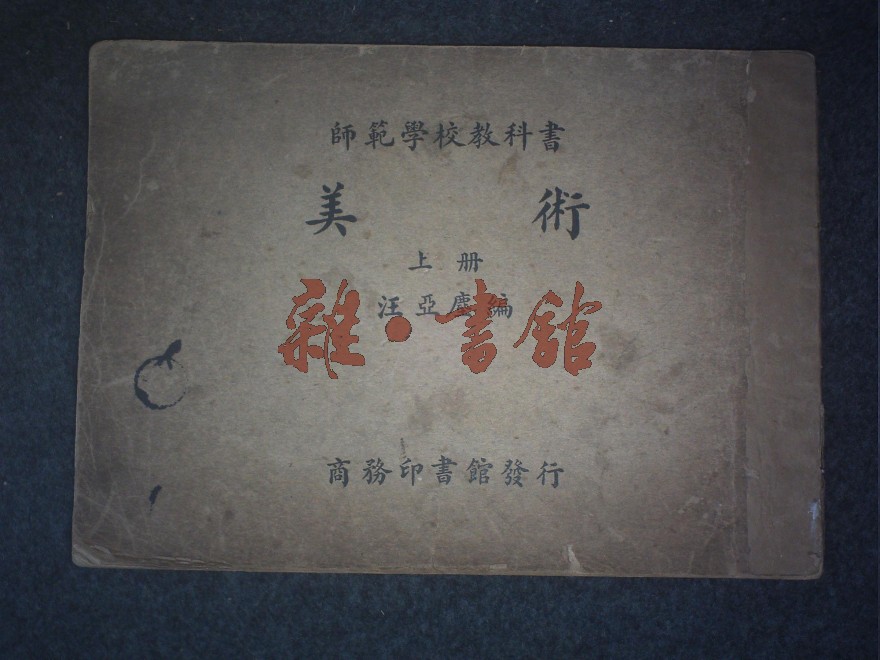 師範學校教科書
美術
上册
汪亞塵編
雜·書館
商務印書館發行